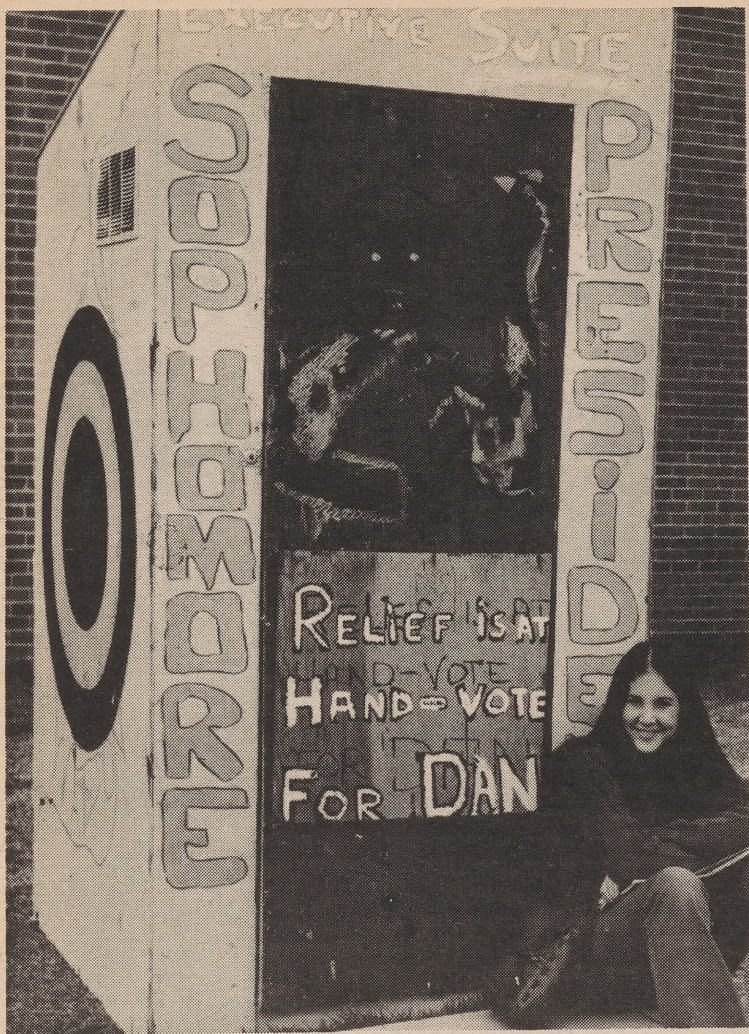 EXECUTIVE SUITE
SOPHOMORE
PRESIDE
RELIEF IS AT
HAND-VOTE
FOR DAN